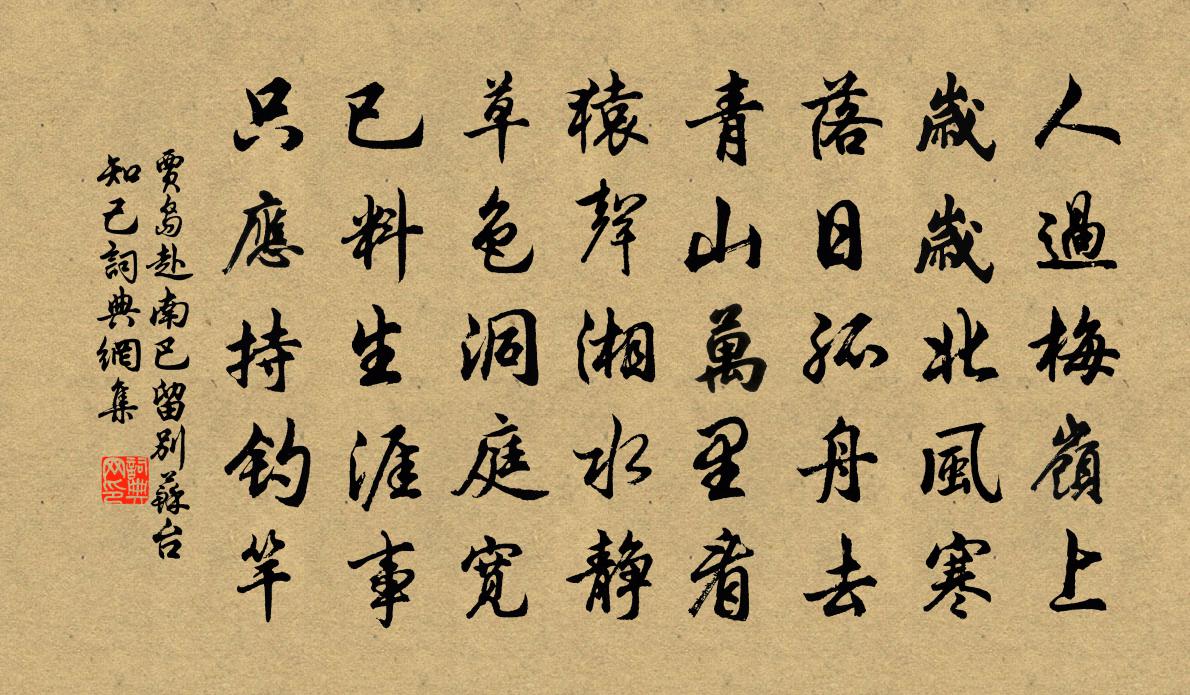 人過梅嶺上
歲歲北風寒
落日孤舟去
青山萬里看
猿聲湘水靜
草色洞庭寬
已料生涯事
只應持釣竿
賈島赴南巴留別蘇台
知己詞典網集
詞典网印